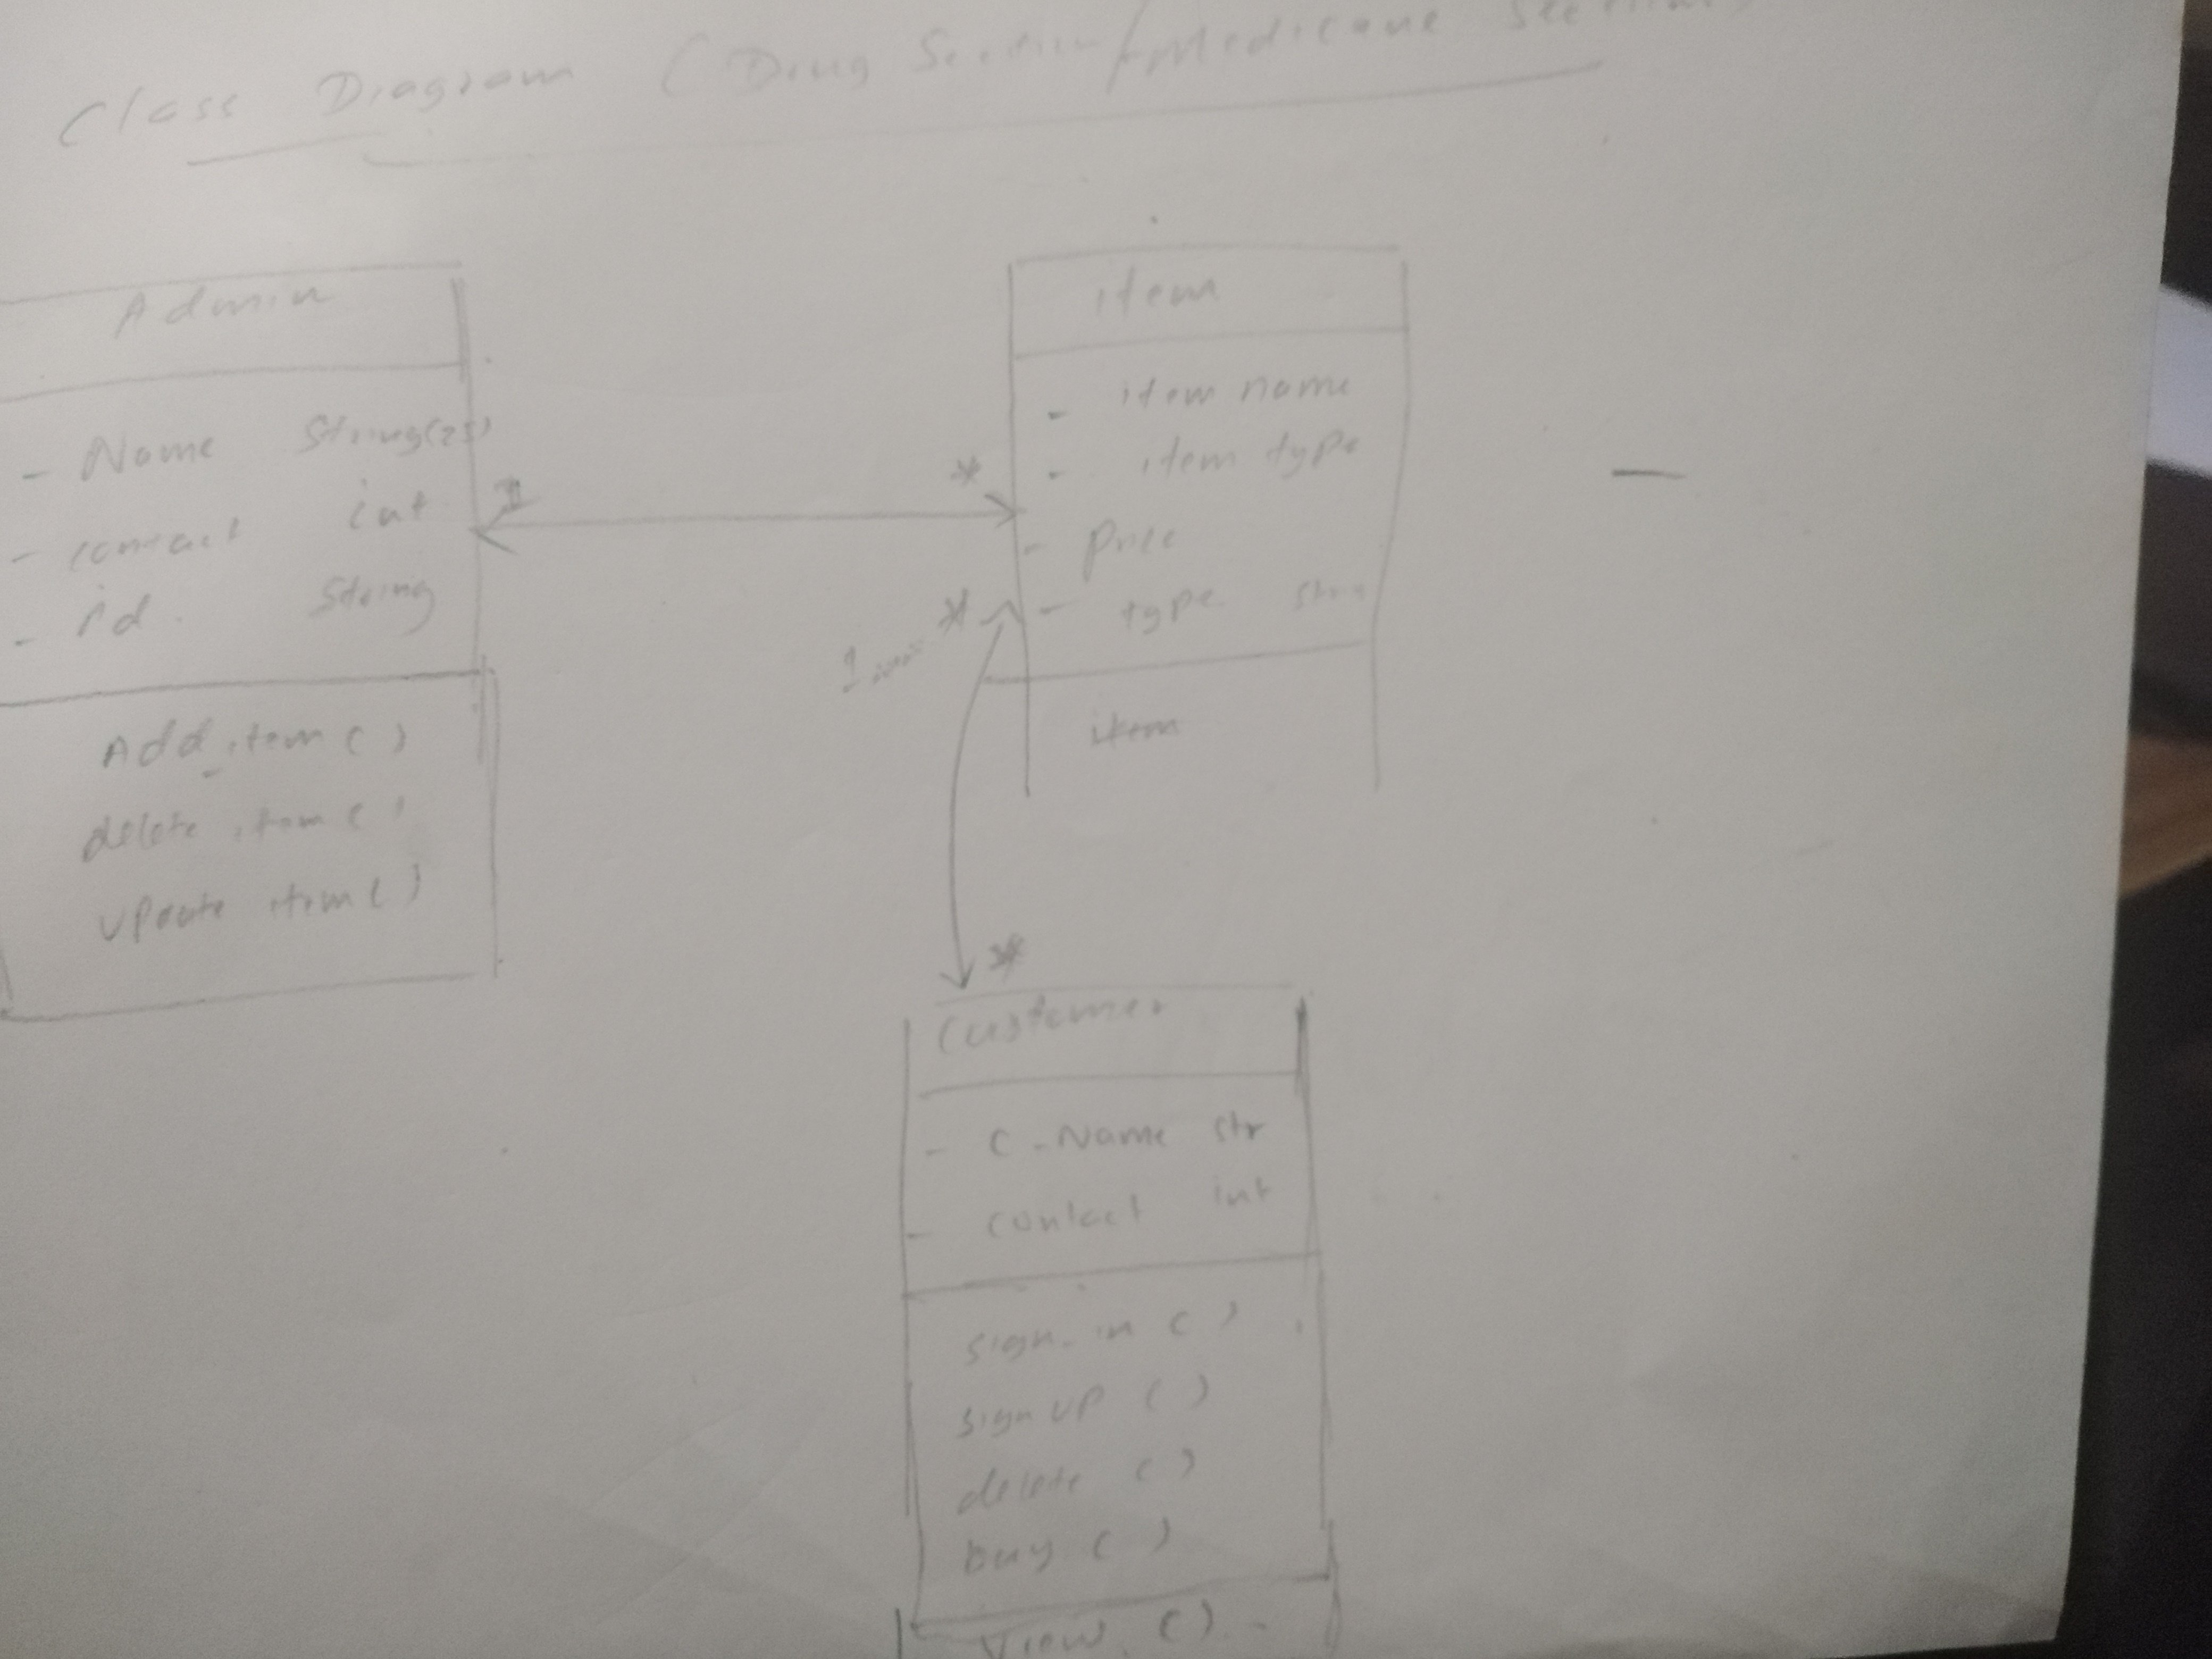 Class Diagram ( Drug Section / Medicane Section
Admin
- Name String(25)
- contact int
- id String
Add_item ( )
delete item ( )
update item ( )
1
*
item
- item name
- item type
- price
- type
item
*
1
*
Customer
- C-Name str
- contact int
sign-in ( )
sign up ( )
delete ( )
buy ( )
View ( )